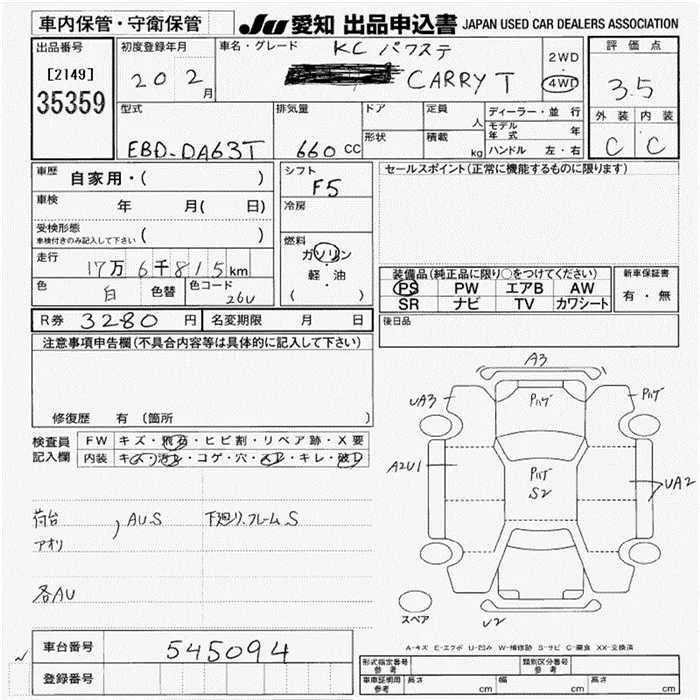 車内保管・守衛保管
JU 愛知 出品申込書 JAPAN USED CAR DEALERS ASSOCIATION
出品番号
[2149]
35359
初度登録年月
20 2月
車名・グレード
KC パワステ
CARRY T
2WD
・
4WD
評価点
3.5
外装 内装
C C
型式
EBD-DA63T
排気量
660 CC
ドア
形状
定員
人
積載
kg
ディーラー・並行
モデル年式 年
ハンドル 左・右
車歴 自家用・( )
車検 年 月( 日)
受検形態
車検付きのみ記入して下さい ( )
走行
17万6千815km
色 白 色替 色コード 26U
シフト
F5
冷房
燃料
ガソリン
・
軽・油
( )
セールスポイント(正常に機能するものに限ります)
装備品(純正品に限り○をつけてください)
PS PW エアB AW
SR ナビ TV カワシート
新車保証書
有・無
後日品
R券 3280円 名変期限 月 日
注意事項申告欄(不具合内容等は具体的に記入して下さい)
修復歴 有 (箇所 )
検査員記入欄
FW キズ・飛石・ヒビ割・リペア跡・X要
内装 キズ・汚レ・コゲ・穴・スレ・キレ・破レ
荷台
アオリ
, AU.S
下廻り.フレームS
各AU
A3
UA3
Pハゲ
Pハゲ
A2U1
Pハゲ
S2
UA2
U2
スペア
A-キズ E-エクボ U-凹み W-補修跡 S-サビ C-腐食 XX-交換済
車台番号 545094
登録番号
形式指定番号
参考
類別区分番号
参考
車庫証明用
参考
長さ cm 幅 cm 高さ cm